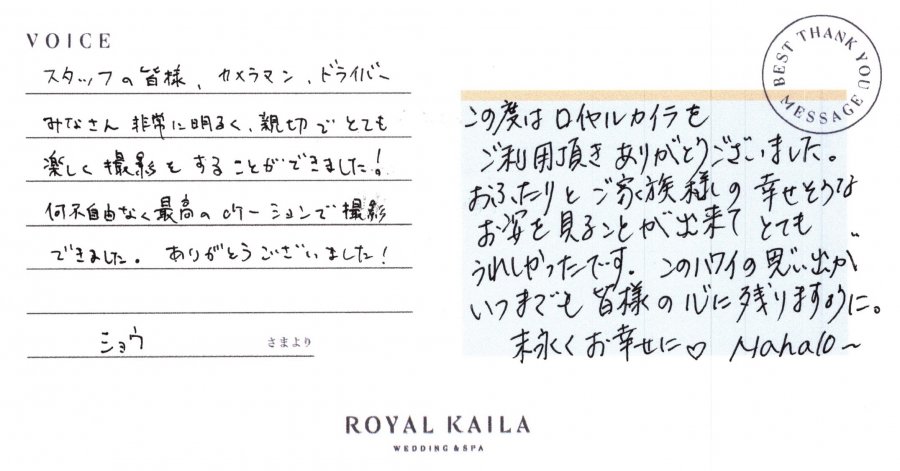 VOICE
スタッフの皆様、カメラマン、ドライバー
みなさん 非常に明るく、親切で とても
楽しく 撮影を することができました!
何不自由なく最高のロケーションで撮影
できました。 ありがとうございました!
ショウ さまより
BEST THANK YOU MESSAGE
この度は ロイヤルカイラを
ご利用頂き ありがとうございました。
おふたりと ご家族様の 幸せそうな
お姿を 見ることが出来て とても
うれしかったです。 このハワイの思い出が
いつまでも 皆様の心に残りますように。
末永く お幸せに♡ Mahalo~
ROYAL KAILA
WEDDING & SPA